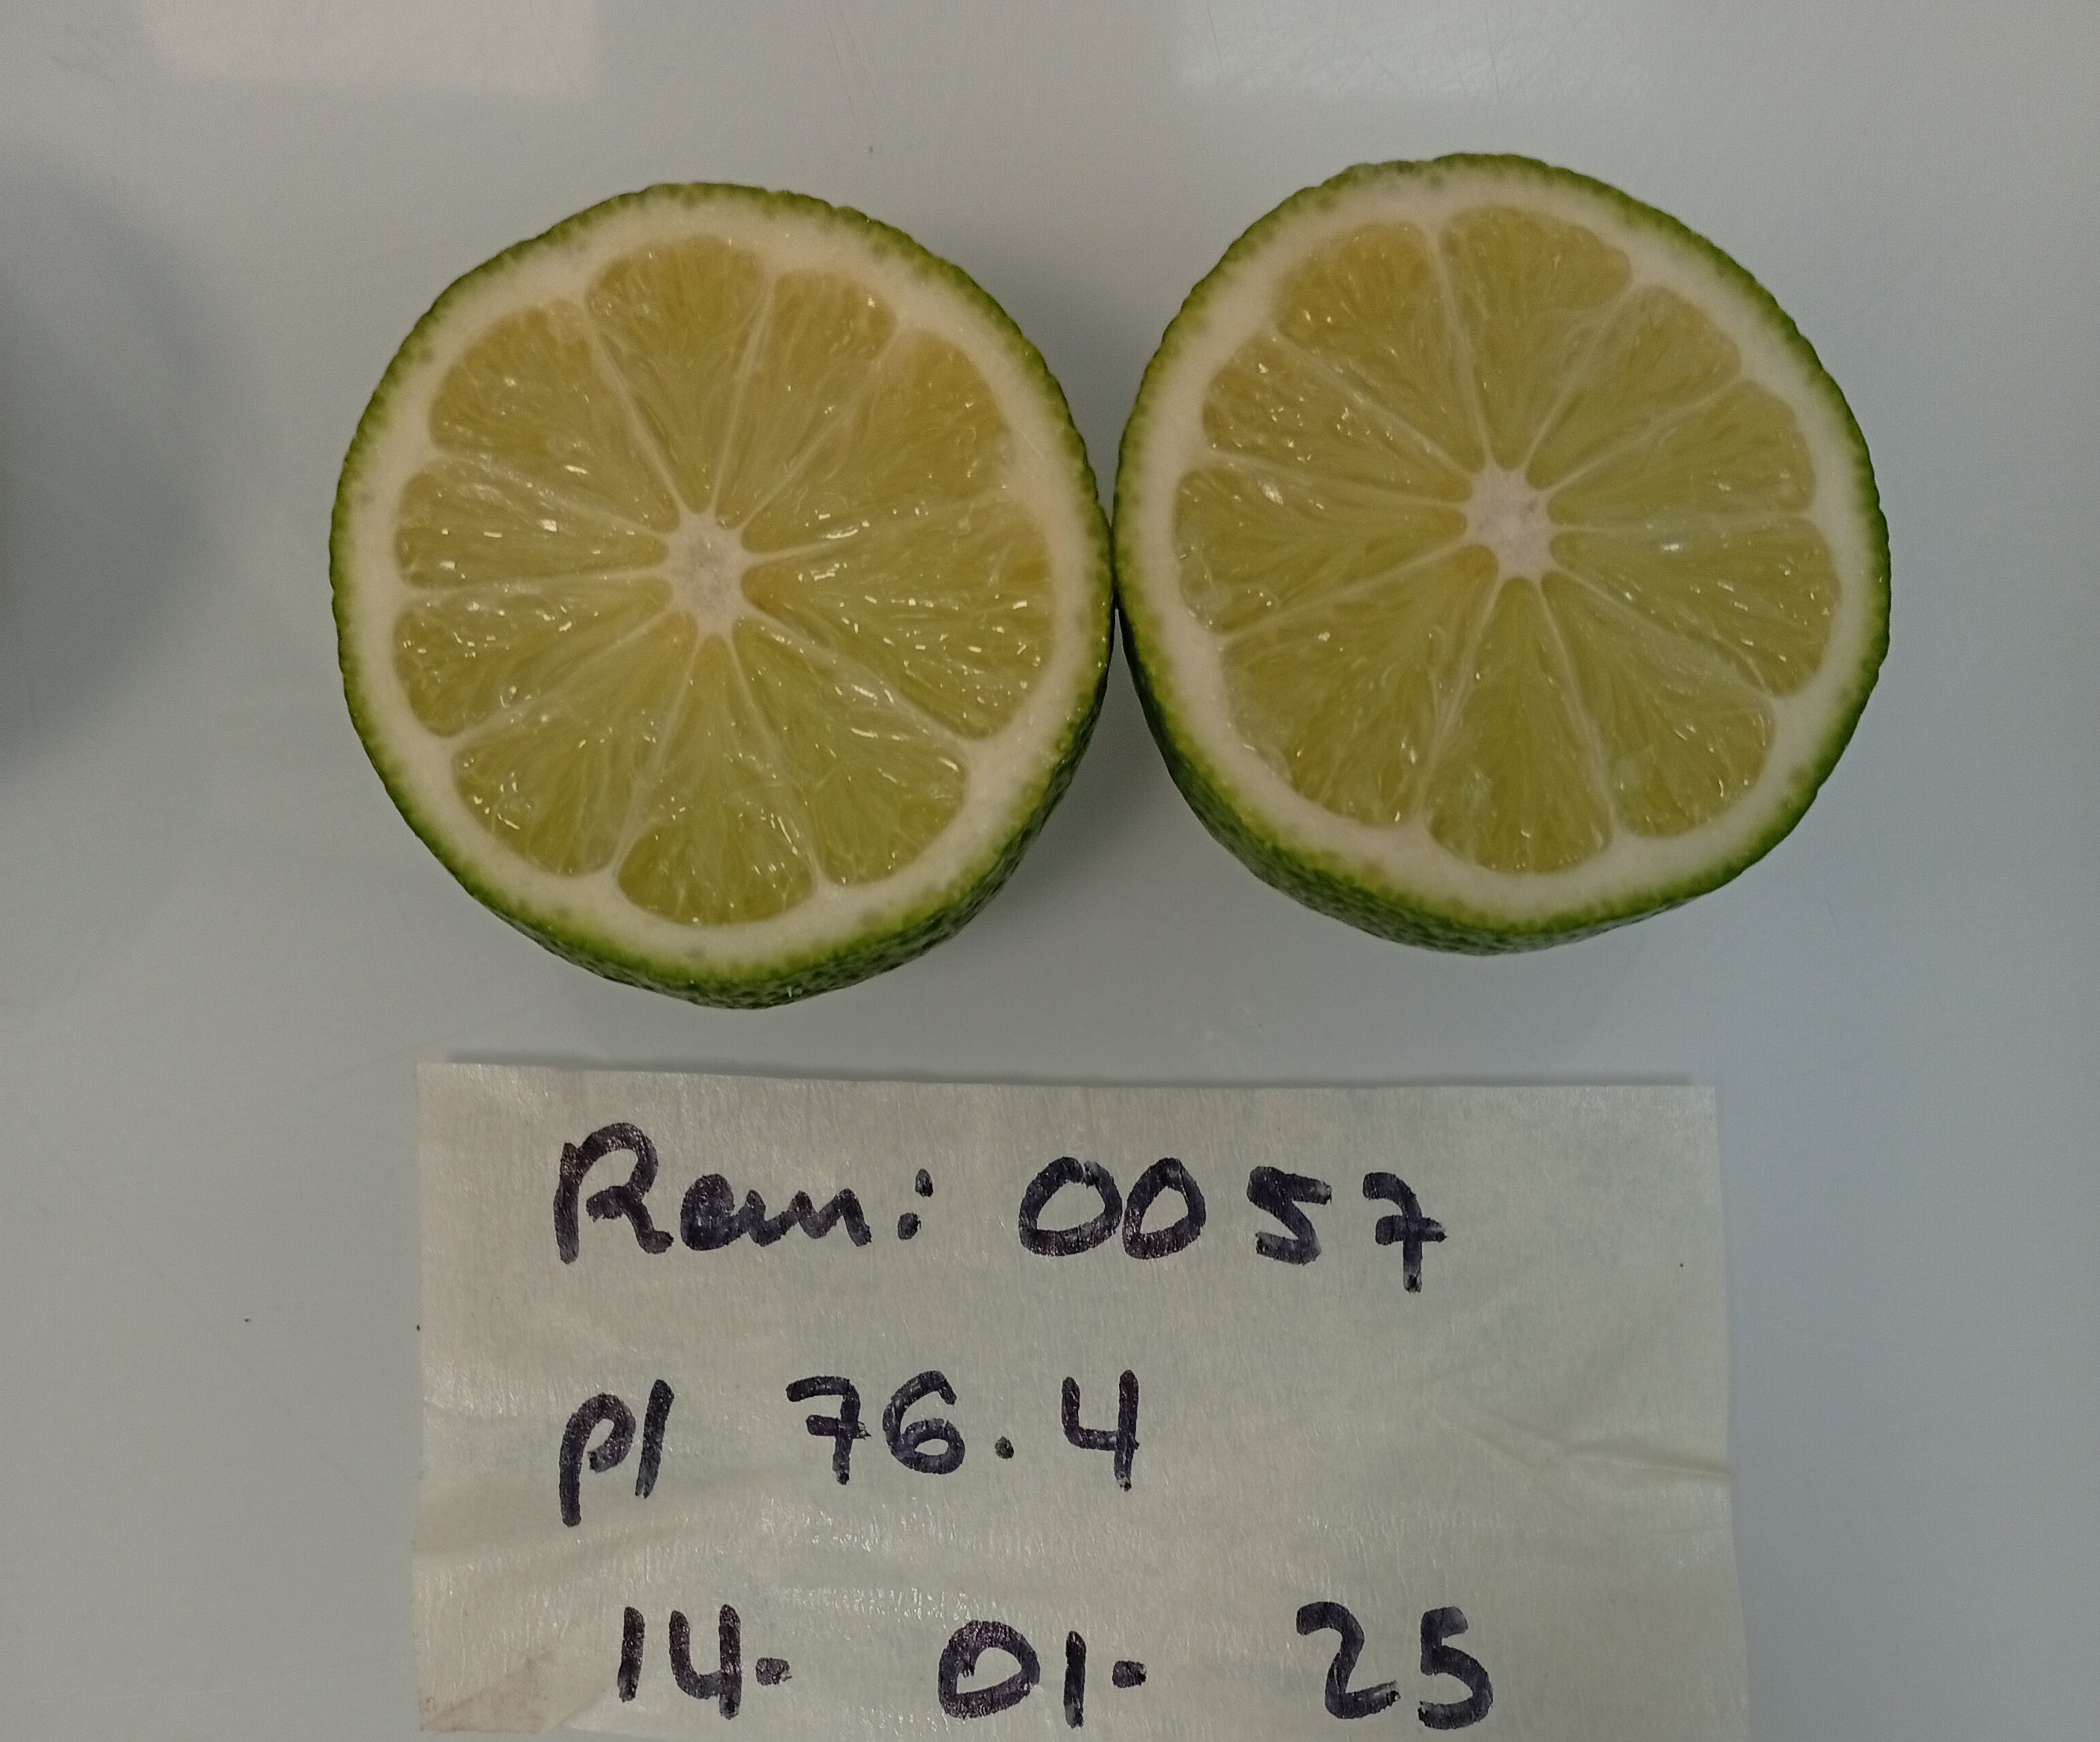 Rem: 0057
pl 76.4
14. 01. 25